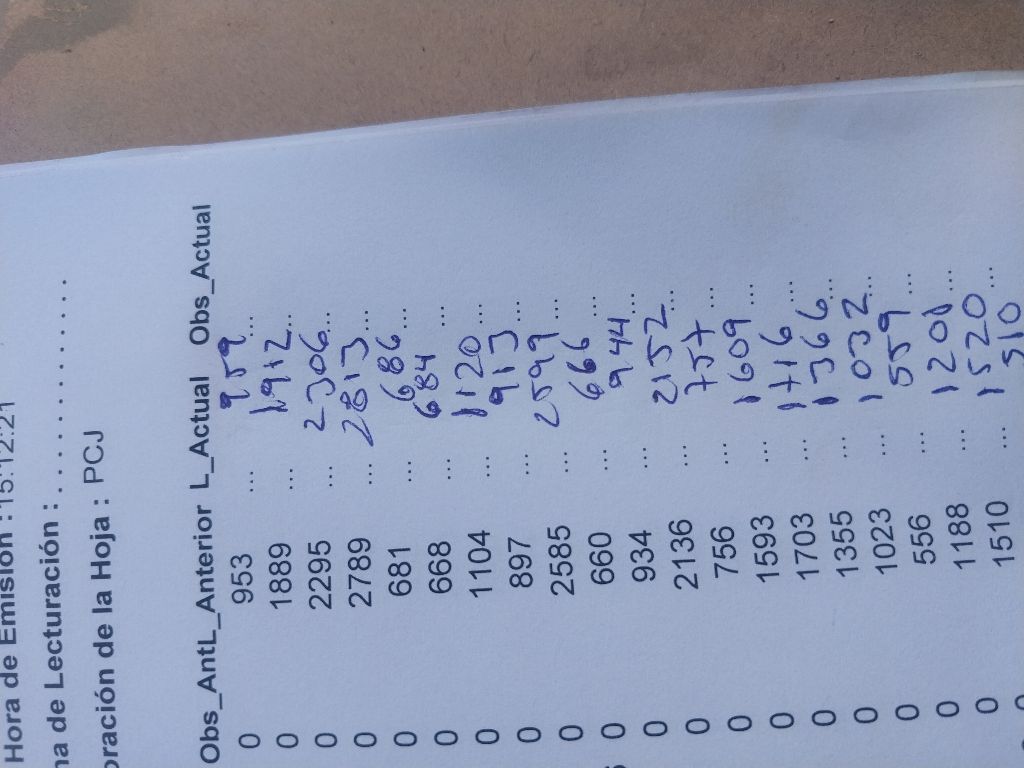 Hora de Emisión : 15:12:21
na de Lecturación : . . . . . . . . . . . . . . . . .
oración de la Hoja : PCJ
Obs_AntL_Anterior L_Actual Obs_Actual
0 953 ... 959 ...
0 1889 ... 1912 ...
0 2295 ... 2306 ...
0 2789 ... 2813 ...
0 681 ... 686 ...
0 668 ... 684 ...
0 1104 ... 1120 ...
0 897 ... 913 ...
0 2585 ... 2599 ...
0 660 ... 666 ...
0 934 ... 944 ...
0 2136 ... 2152 ...
0 756 ... 757 ...
0 1593 ... 1609 ...
0 1703 ... 1716 ...
0 1355 ... 1366 ...
0 1023 ... 1032 ...
0 556 ... 559 ...
0 1188 ... 1200 ...
0 1510 ... 1520 ...
510